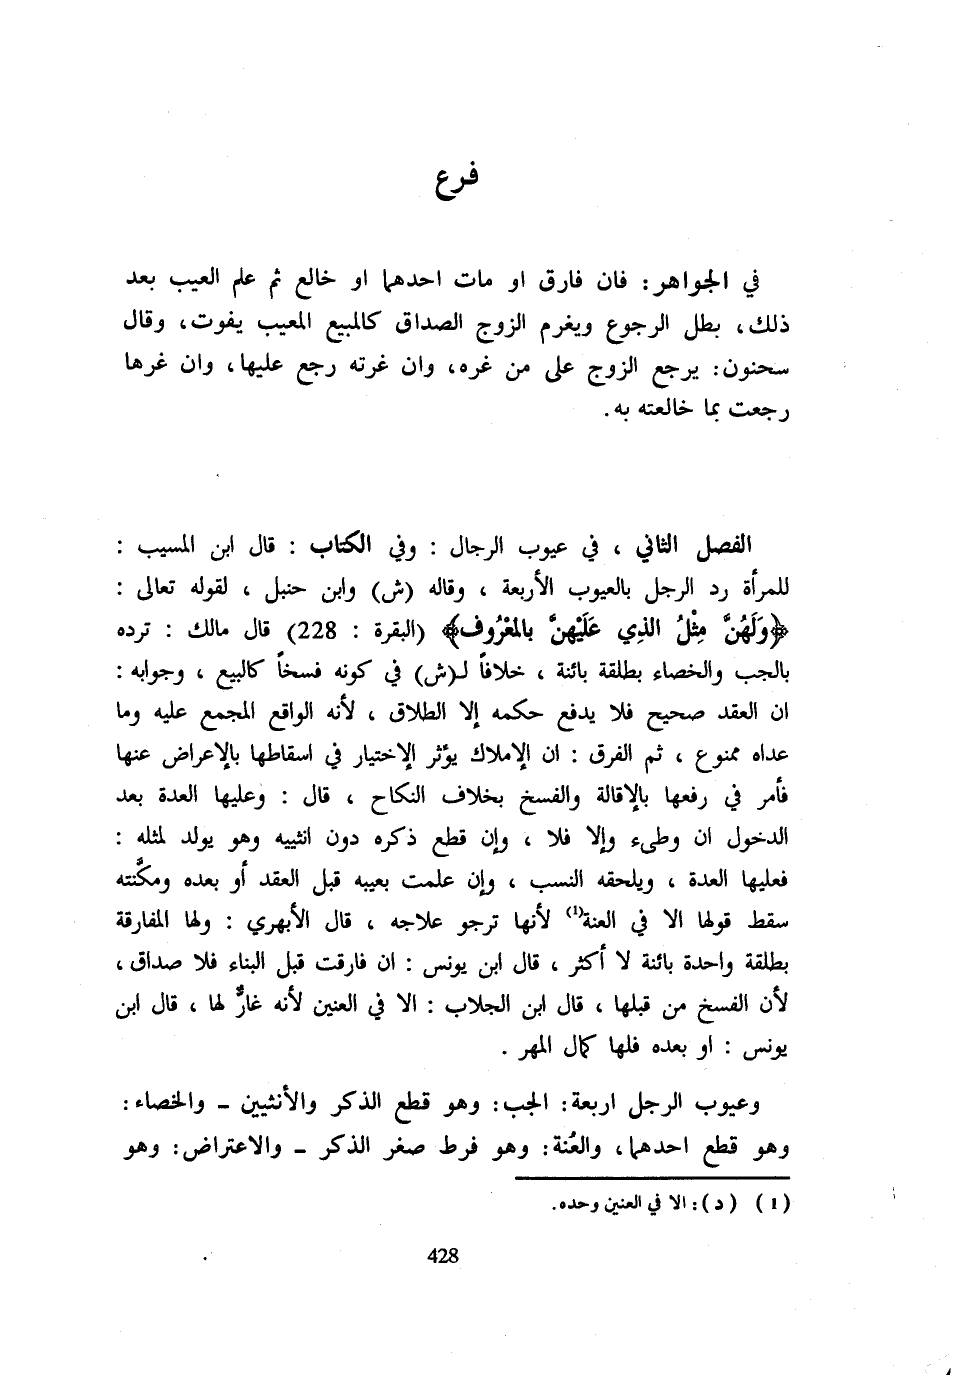 فرع
في الجواهر: فان فارق او مات احدهما او خالع ثم علم العيب بعد
ذلك، بطل الرجوع ويغرم الزوج الصداق كالمبيع المعيب يفوت، وقال
سحنون: يرجع الزوج على من غره، وان غرته رجع عليها، وان غرها
رجعت بما خالعته به.
الفصل الثاني ، في عيوب الرجال : وفي الكتاب : قال ابن المسيب :
للمرأة رد الرجل بالعيوب الأربعة ، وقاله (ش) وابن حنبل ، لقوله تعالى :
﴿وَلَهُنَّ مِثْلُ الذِي عَلَيْهِنَّ بالمَعْرُوف﴾ (البقرة : 228) قال مالك : ترده
بالجب والخصاء بطلقة بائنة ، خلافاً لـ(ش) في كونه فسخاً كالبيع ، وجوابه :
ان العقد صحيح فلا يدفع حكمه إلا الطلاق ، لأنه الواقع المجمع عليه وما
عداه ممنوع ، ثم الفرق : ان الإملاك يؤثر الإختيار في اسقاطها بالإعراض عنها
فأمر في رفعها بالإقالة والفسخ بخلاف النكاح ، قال : وعليها العدة بعد
الدخول ان وطىء وإلا فلا ، وإن قطع ذكره دون انثييه وهو يولد لمثله :
فعليها العدة ، ويلحقه النسب ، وإن علمت بعيبه قبل العقد أو بعده ومكَّنته
سقط قولها الا في العنة(1) لأنها ترجو علاجه ، قال الأبهري : ولها المفارقة
بطلقة واحدة بائنة لا أكثر ، قال ابن يونس : ان فارقت قبل البناء فلا صداق ،
لأن الفسخ من قبلها ، قال ابن الجلاب : الا في العنين لأنه غارٌّ لها ، قال ابن
يونس : او بعده فلها كمال المهر .
وعيوب الرجل اربعة: الجب: وهو قطع الذكر والأنثيين ـ والخصاء:
وهو قطع احدهما، والعُنة: وهو فرط صغر الذكر ـ والاعتراض: وهو
(1) (د): الا في العنين وحده.
428